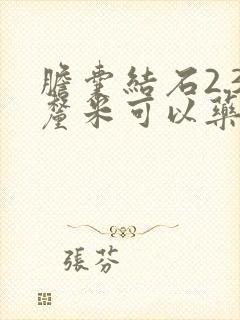 膽囊結石2.3
釐米可以藥
張芬